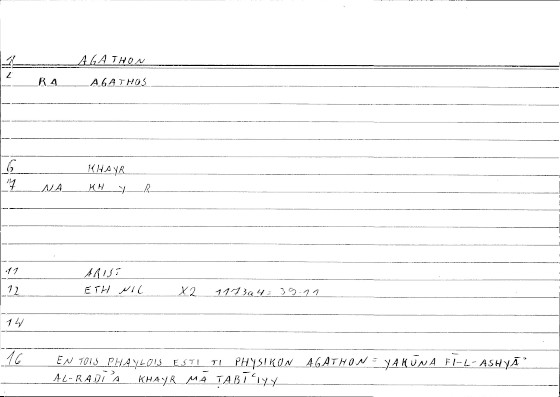 1 AGATHON
2 RA AGATHOS
6 KHAYR
7 NA KH Y R
11 ARIST
12 ETH NIC X2 1173a4 =
14
16 EN TOIS PHAYLOIS ESTI TI PHYSIKON AGATHON = YAKŪNA FĪ-L-ASHYĀʾ
AL-RADĪʾA KHAYR MĀ ṬABĪʿIYY